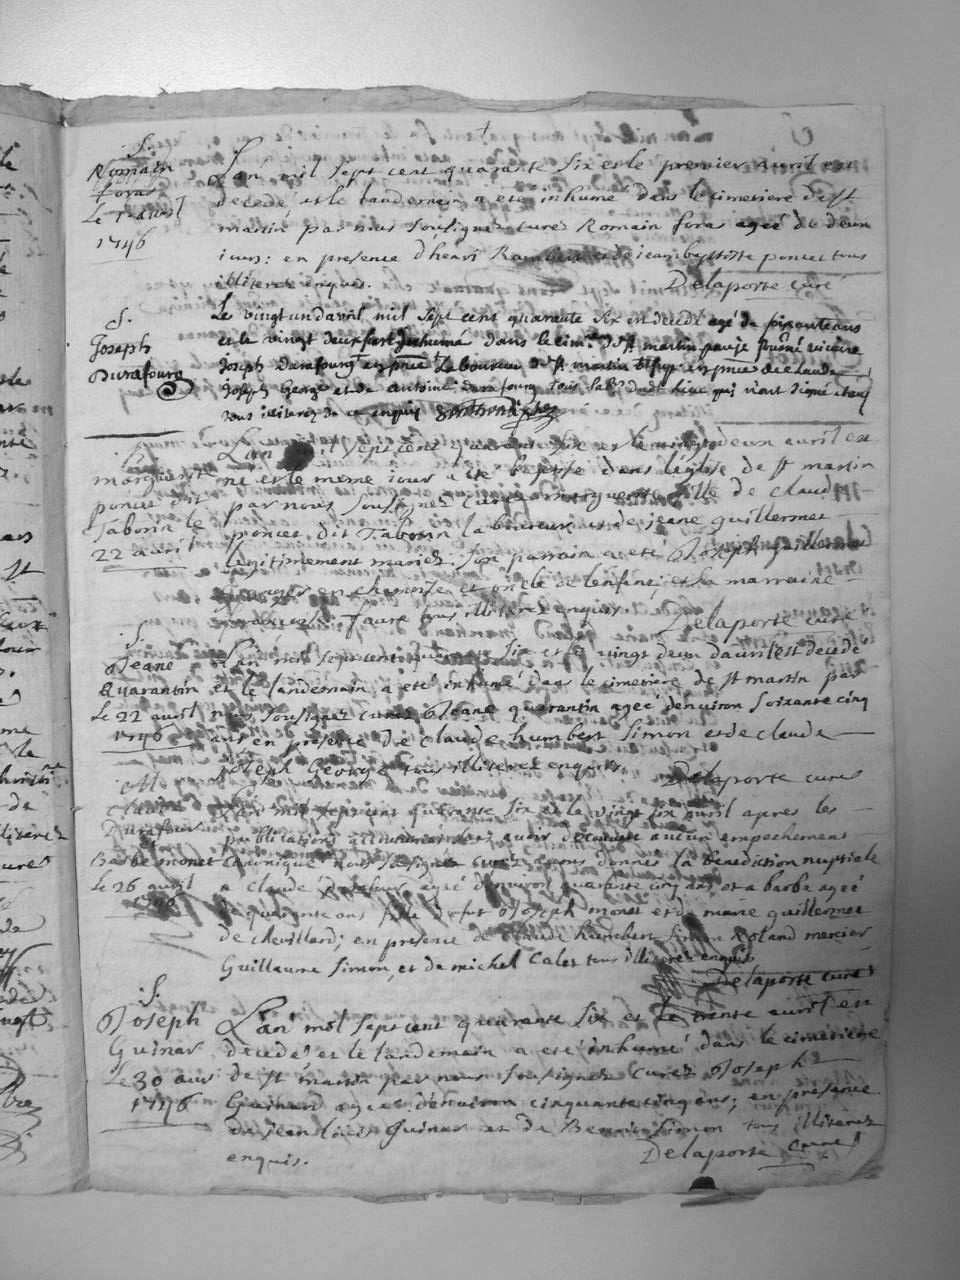 S.
Romain
foras
Le 1 avril
1746
Lan mil sept cent quarante six et le premier avril est
decedé et le landemain a eté inhumé dans le cimetiere de st
martin par nous sousigné curez Romain foras agée de deux
iours: en presence dhenri Rambert et de jean baptiste poncet tous
illiterez enquis. Delaporte curé
S.
Joseph
Durafourg
Le vingt un davril mil sept cent quarante six est decedé agé de soixante ans
et le vingt deux fut Inhumé dans le cim.re de st martin par je vicaire
Joseph Durafourg Laboureur de st martin en pnce de claude
Joseph George et de Antoine durafourg tous Lab.rs dudt lieu qui n'ont signé
pour illiterez de ce enquis
B.
marguerite
poncet dit
Taborin le
22 avril
Lan sept cent quarante six et le vingt deux avril est
né et le meme iour a eté baptisé dans léglise de st martin
par nous sousignez curé marguerite fille de claude
poncet dit Taborin laboureur et de jeane guillermet
légitimement mariez. son parrain a eté Joseph guillermet
et oncle de lenfant, et la marraine
faure tous illiterez enquis. Delaporte curé
S.
Jeane
Quarantin
Le 22 avril
1746
Lan mil sept cent quarante six et le vingt deux davril est decedé
et le landemain a eté inhumé dans le cimetiere de st martin par
nous sousignez curez Jeane quarantin agée denviron soixante cinq
ans en presence de claude humbert simon et de claude
joseph George tous illiterez enquis Delaporte curez
M.
Claude
Durafour
Barbe monet
Le 26 avril
1746
Lan mil sept cent quarante six et le vingt six avril apres les
publications sans avoir decouvert aucun empechement
canonique nous sousigné curez avons donnés la benediction nuptiale
a claude Durafour agé denviron quarante cinq ans et a barbe agée
de quarante ans fille de fut Joseph monet et de marie guillermet
de chevillard; en presence de claude humbert simon Roland mercier
Guillaume simon, et de michel Calet tous illiterez enquis
Delaporte curé
S.
Joseph
Guinar
Le 30 avri
1746
Lan mil sept cent quarante six et le trente avril est
decedé et le landemain a eté inhumé dans le cimetiere
de st martin par nous sousignez curez Joseph
Guinard agée denviron cinquante cinq ans; en presence
de jean louis Guinar et de Benoit simon tous illiterez
enquis. Delaporte curé